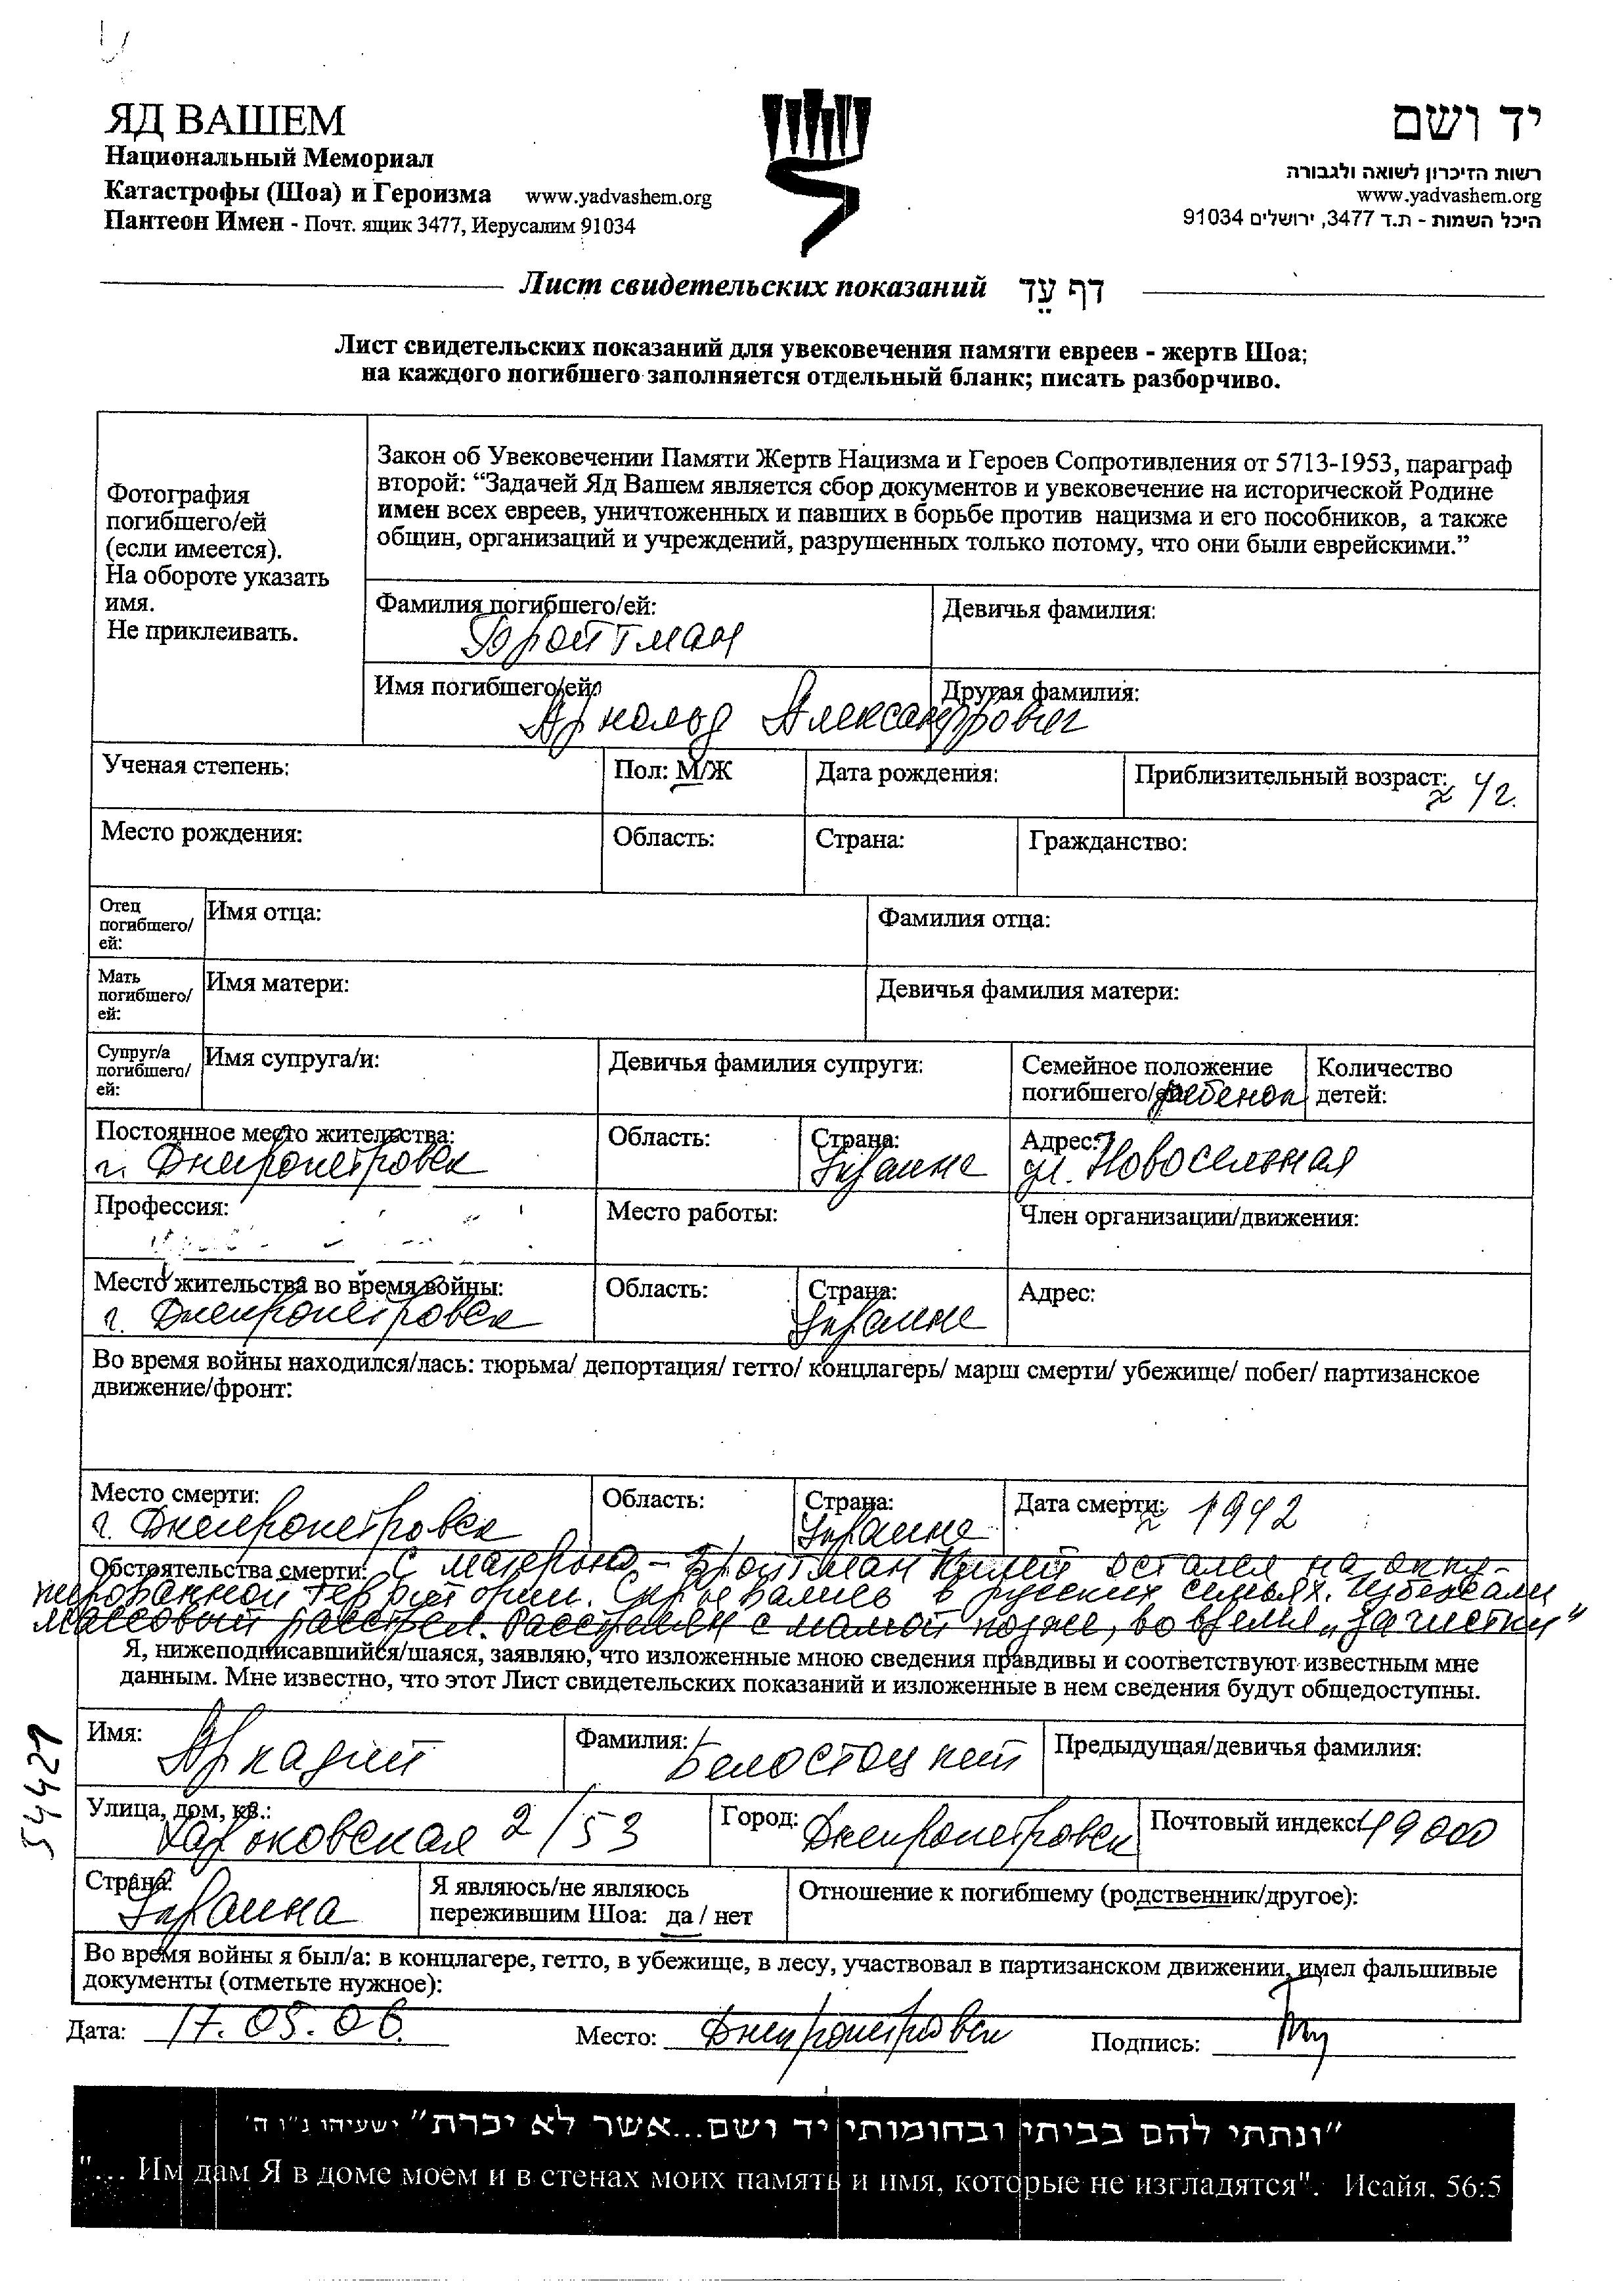 ЯД ВАШЕМ
Национальный Мемориал
Катастрофы (Шоа) и Героизма www.yadvashem.org
Пантеон Имен - Почт. ящик 3477, Иерусалим 91034
יד ושם
רשות הזיכרון לשואה ולגבורה
www.yadvashem.org
היכל השמות - ת.ד 3477, ירושלים 91034
Лист свидетельских показаний דף עֵד
Лист свидетельских показаний для увековечения памяти евреев - жертв Шоа;
на каждого погибшего заполняется отдельный бланк; писать разборчиво.
Фотография
погибшего/ей
(если имеется).
На обороте указать
имя.
Не приклеивать.
Закон об Увековечении Памяти Жертв Нацизма и Героев Сопротивления от 5713-1953, параграф
второй: “Задачей Яд Вашем является сбор документов и увековечение на исторической Родине
имен всех евреев, уничтоженных и павших в борьбе против нацизма и его пособников, а также
общин, организаций и учреждений, разрушенных только потому, что они были еврейскими.”
Фамилия погибшего/ей: Девичья фамилия:
Бройтман
Имя погибшего/ей: Другая фамилия:
Арнольд Александрович
Ученая степень: Пол: М/Ж Дата рождения: Приблизительный возраст: ≈ 4 г.
Место рождения: Область: Страна: Гражданство:
Отец
погибшего/
ей:
Имя отца: Фамилия отца:
Мать
погибшего/
ей:
Имя матери: Девичья фамилия матери:
Супруг/а
погибшего/
ей:
Имя супруга/и: Девичья фамилия супруги: Семейное положение
погибшего/ей: ребенок
Количество
детей:
Постоянное место жительства: Область: Страна: Адрес:
г. Днепропетровск Украина ул. Новосельная
Профессия: Место работы: Член организации/движения:
Место жительства во время войны: Область: Страна: Адрес:
г. Днепропетровск Украина
Во время войны находился/лась: тюрьма/ депортация/ гетто/ концлагерь/ марш смерти/ убежище/ побег/ партизанское
движение/фронт:
Место смерти: Область: Страна: Дата смерти: ≈ 1942
г. Днепропетровск Украина
Обстоятельства смерти: С матерью - Бройтман остался на оккупи-
рованной территории. Скрывались в русских семьях. Избежали
массовый расстрел. Расстрелян с мамой позже, во время „зачистки"
Я, нижеподписавшийся/шаяся, заявляю, что изложенные мною сведения правдивы и соответствуют известным мне
данным. Мне известно, что этот Лист свидетельских показаний и изложенные в нем сведения будут общедоступны.
54421
Имя: Аркадий Фамилия: Белостоцкий Предыдущая/девичья фамилия:
Улица, дом, кв.: Город: Днепропетровск Почтовый индекс: 49000
Харьковская 2/53
Страна: Украина
Я являюсь/не являюсь
пережившим Шоа: да / нет
Отношение к погибшему (родственник/другое):
Во время войны я был/а: в концлагере, гетто, в убежище, в лесу, участвовал в партизанском движении, имел фальшивые
документы (отметьте нужное):
Дата: 17.05.06. Место: Днепропетровск Подпись:
"ונתתי להם בביתי ובחומותי יד ושם...אשר לא יכרת" ישעיהו נ"ו ה'
"... Им дам Я в доме моем и в стенах моих память и имя, которые не изгладятся". Исайя, 56:5